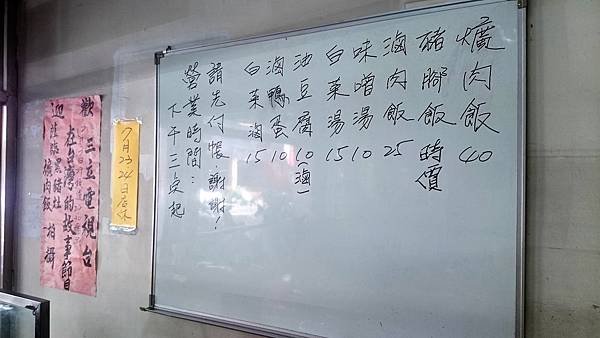 爌肉飯 40
豬腳飯 時價
滷肉飯 25
味噌湯 10
白菜湯 15
油豆腐 10(滷)
滷鴨蛋 10
白菜滷 15
請先付帳.謝謝!
營業時間:
下午三點起
7月23
24日店休
歡 三立電視台
在台灣的故事節目
迎
爌肉飯 拍攝